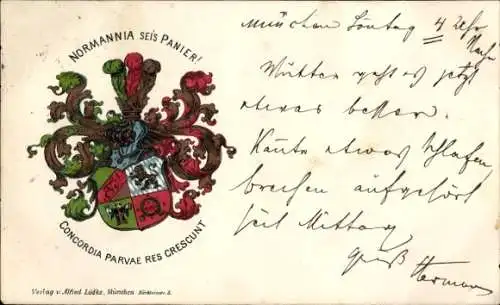 NORMANNIA SEI'S PANIER!
CONCORDIA PARVAE RES CRESCUNT
Verlag v. Alfred Lüdke, München
München Sontag 4 Uhr
Nach
Mutter geht es jetzt
etwas besser.
Kannte etwas schlafen
brechen aufgehört
seit Mittag
Gruß Hermann